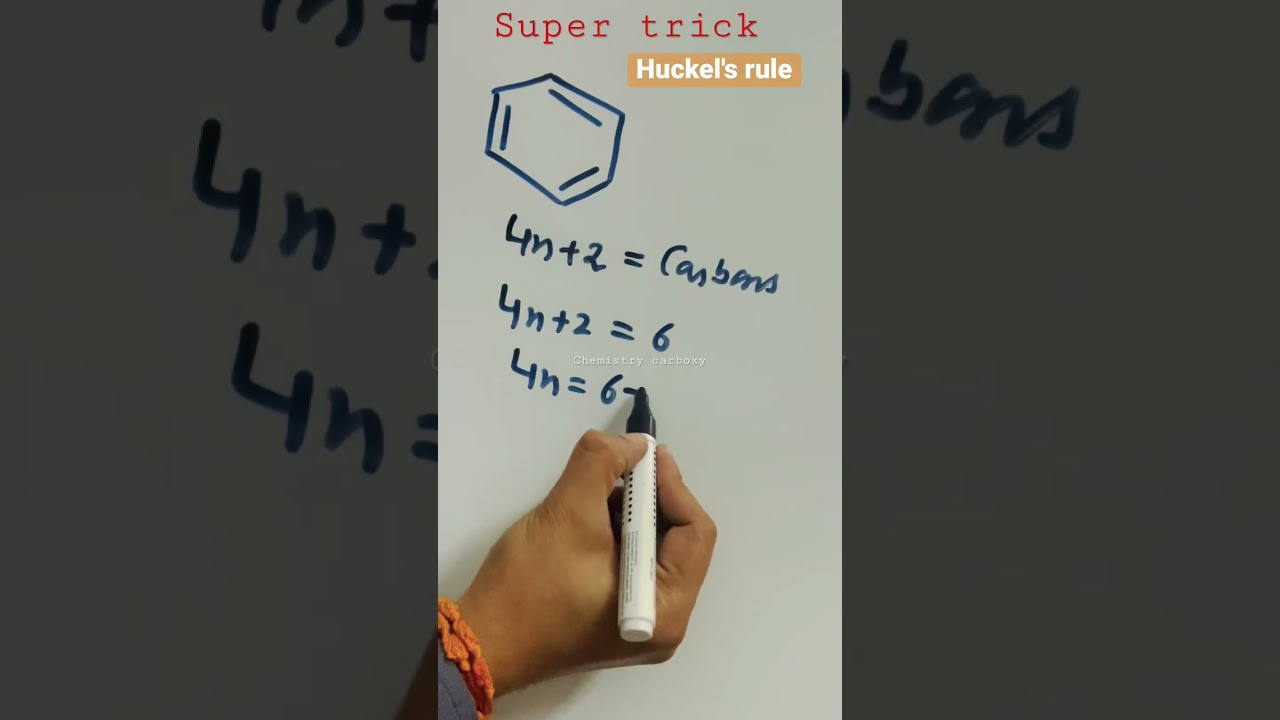 Super trick
Huckel's rule
4n+2 = Carbons
4n+2 = 6
Chemistry carboxy
4n = 6-